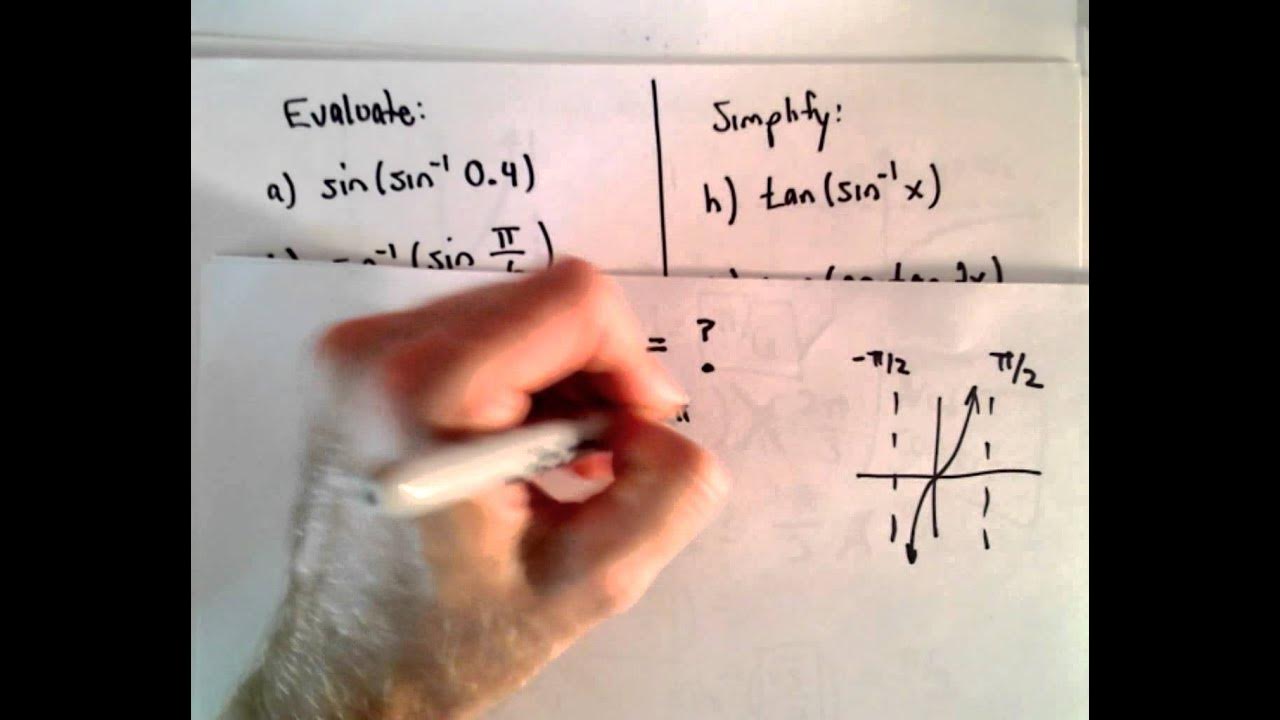 Evaluate:
a) sin(sin⁻¹ 0.4)
(sin π
Simplify:
h) tan(sin⁻¹ x)
= ?
-π/2
π/2